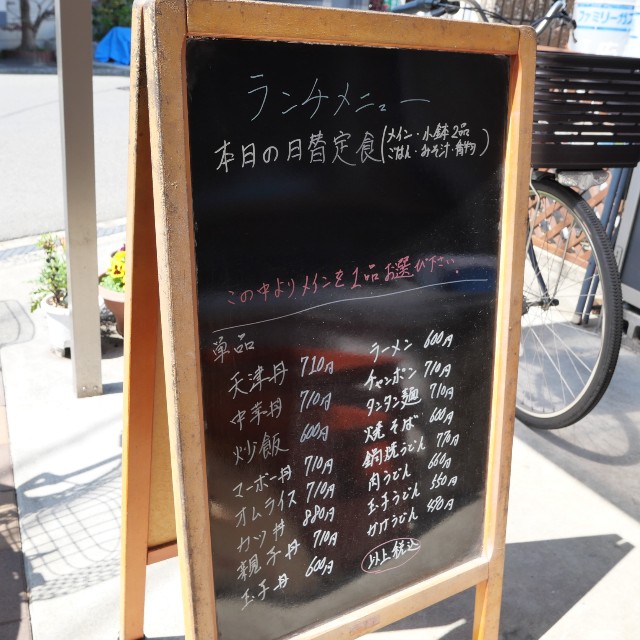 ランチメニュー
本日の日替定食(メイン・小鉢2品
ごはん・みそ汁・香物)
この中よりメインを1品お選び下さい
単品
天津丼 710円
中華丼 710円
炒飯 600円
マーボー丼 710円
オムライス 710円
カツ丼 880円
親子丼 710円
玉子丼 600円
ラーメン 600円
チャンポン 710円
タンタン麺 710円
焼そば 600円
鍋焼うどん 770円
肉うどん 660円
玉子うどん 550円
カケうどん 450円
以上税込
ファミリーガス